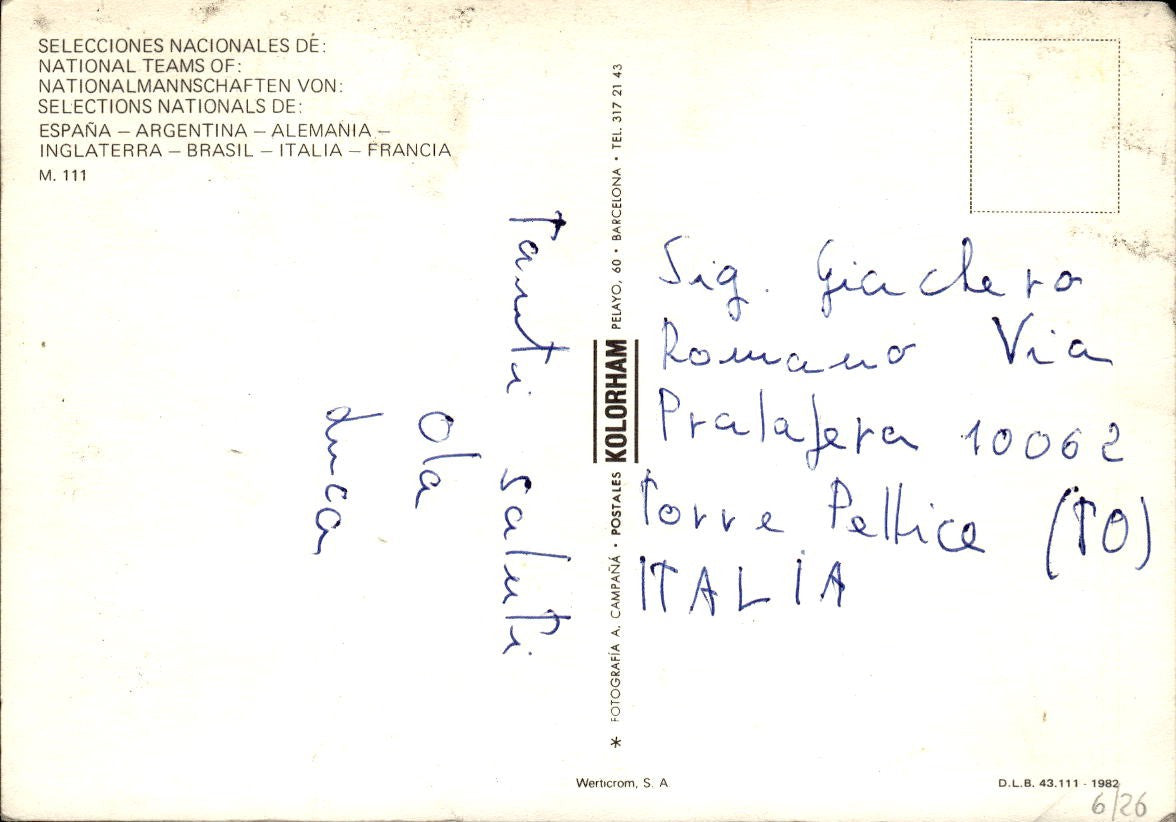 SELECCIONES NACIONALES DE:
NATIONAL TEAMS OF:
NATIONALMANNSCHAFTEN VON:
SELECTIONS NATIONALS DE:
ESPAÑA – ARGENTINA – ALEMANIA –
INGLATERRA – BRASIL – ITALIA – FRANCIA
M. 111
Tanti saluti
Ola
Luca
* FOTOGRAFÍA A. CAMPAÑÁ • POSTALES KOLORHAM PELAYO, 60 • BARCELONA • TEL. 317 21 43
Sig. Giachero
Romano Via
Pralafera 10062
Torre Pellice (TO)
ITALIA
Werticrom, S. A
D.L.B. 43.111 - 1982
6/26